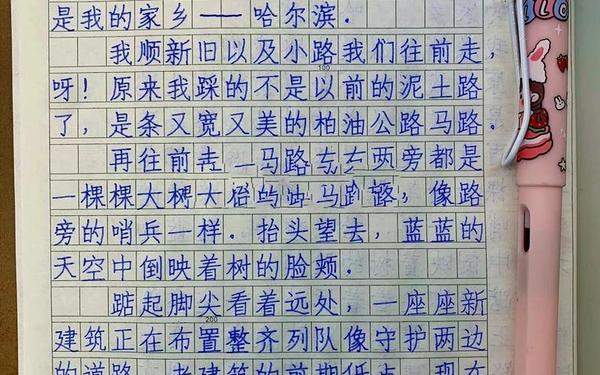 是我的家乡——哈尔滨.
我顺新旧以及小路我们往前走,
呀!原来我踩的不是以前的泥土路
100
了,是条又宽又美的柏油公路马路.
再往前走一马路左左两旁都是
一棵棵大树大 马路路,像路
旁的哨兵一样.抬头望去,蓝蓝的
天空中倒映着树的脸颊.
踮起脚尖看着远处,一座座新
建筑正在布置整齐列队像守护两边
200
的道路.老建筑的前期低点.现在